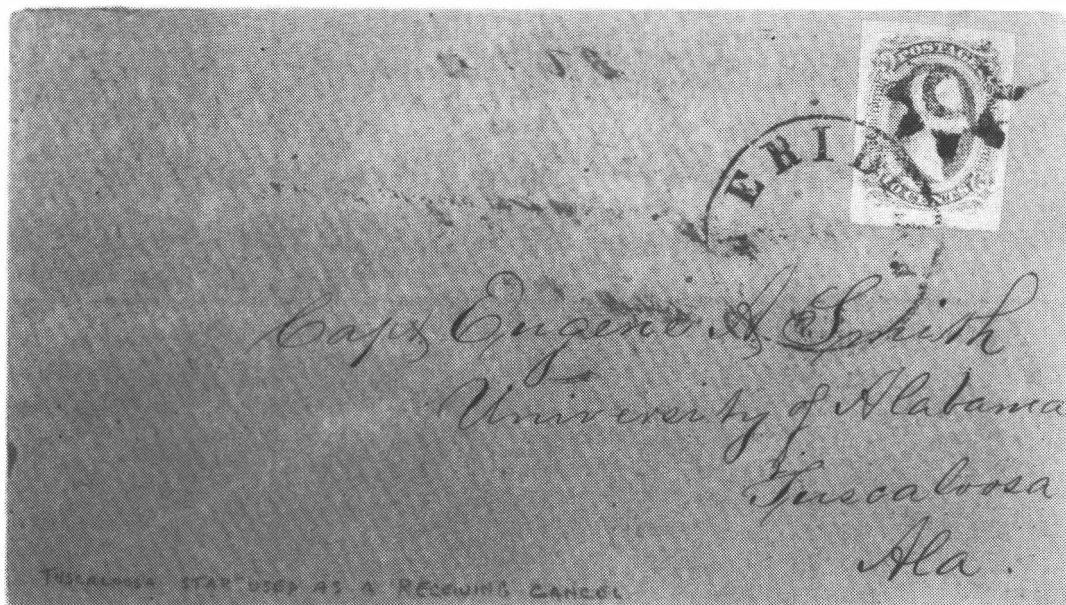 POSTAGE
ERIE
Capt Eugene A. Smith
University of Alabama
Tuscaloosa
Ala.
TUSCALOOSA STAR USED AS A RECEIVING CANCEL